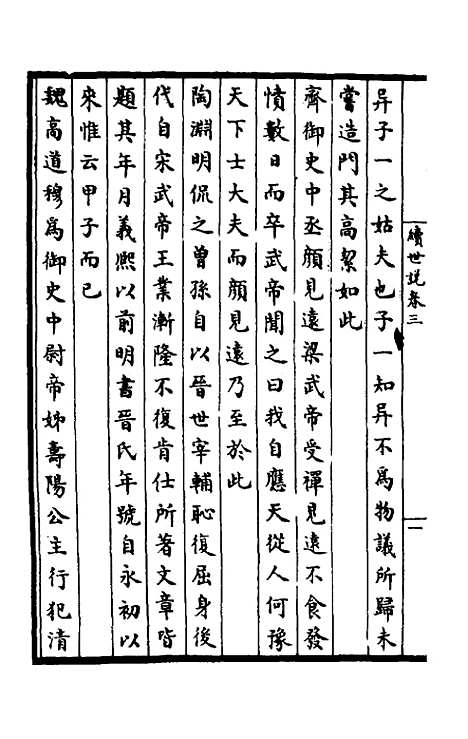 續世說卷三
一
异子一之姑夫也子一知异不爲物議所歸未
嘗造門其高絜如此
齊御史中丞顔見遠梁武帝受禪見遠不食發
憤數日而卒武帝聞之曰我自應天從人何豫
天下士大夫而顔見遠乃至於此
陶淵明侃之曾孫自以晉世宰輔恥復屈身後
代自宋武帝王業漸隆不復肯仕所著文章皆
題其年月義熙以前明書晉氏年號自永初以
來惟云甲子而已
魏高道穆爲御史中尉帝姊壽陽公主行犯清